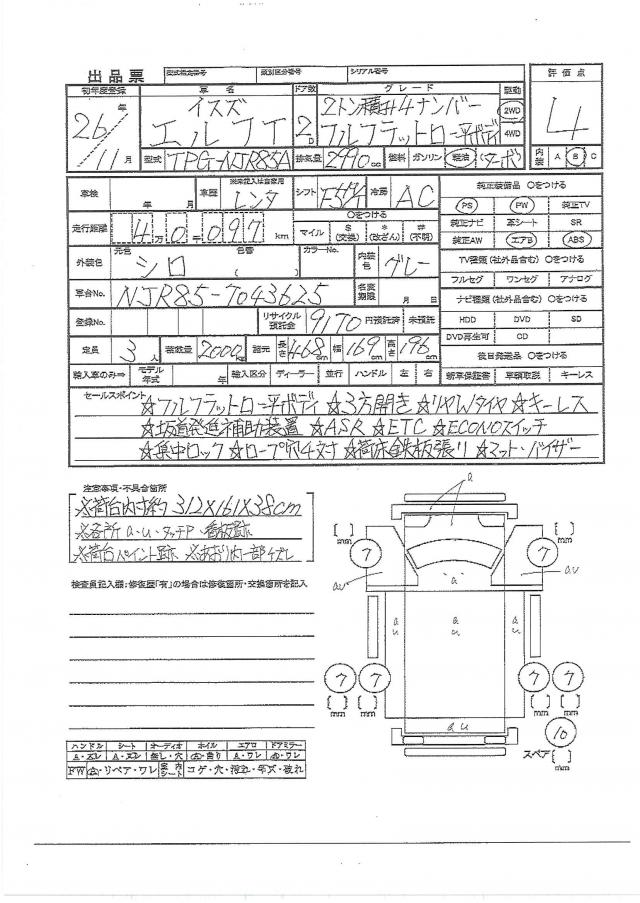 出品票 型式指定番号 類別区分番号 シリアル番号
初年度登録 車名 ドア数 グレード 駆動 評価点
26年 イスズ 2D 2トン積み4ナンバー 2WD 4
11月 エルフT フルフラットロー平ボディ 4WD
型式 TPG-NJR85A 排気量 2990cc 燃料 ガソリン 軽油 (ターボ) 内装 A B C
車検 年 月 車歴 ※未記入は自家用 レンタ シフト F5 冷房 AC 純正装備品 〇をつける
PS PW 純正TV
走行距離 4万0千097km 〇をつける マイル $(交換) *(改ざん) #(不明) 純正ナビ 革シート SR
純正AW エアB ABS
外装色 元色 シロ 色替 ( ) カラーNo. 内装色 グレー TV種類(社外品含む) 〇をつける
フルセグ ワンセグ アナログ
車台No. NJR85-7043625 名変期限 月 日 ナビ種類(社外品含む) 〇をつける
登録No. リサイクル預託金 9170円預託済 未預託 HDD DVD SD
DVD再生可 CD
定員 3人 積載量 2000kg 諸元 長さ468cm 幅169cm 高さ196cm 後日発送品 〇をつける
輸入車のみ⇒ モデル年式 年 輸入区分 ディーラー ・ 並行 ハンドル 左 ・ 右 新車保証書 車輌取説 キーレス
セールスポイント ☆フルフラットロー平ボディ ☆3方開き ☆リヤWタイヤ ☆キーレス
☆坂道発進補助装置 ☆ASR ☆ETC ☆ECONOスイッチ
☆集中ロック ☆ロープ穴4対 ☆荷床鉄板張り ☆マット・バイザー
注意事項・不具合箇所
※荷台内寸約 312×161×38cm
※各所 a.u.タッチP・看板跡
※荷台ペイント跡 ※あおり内一部キズレ
検査員記入欄:修復歴「有」の場合は修復箇所・交換箇所を記入
a
[ ]mm ワ ワ [ ]mm
a
au au
au au au
ワ ワ ワ ワ
[ ]mm [ ]mm [ ]mm [ ]mm
au
10
スペア[ ]mm
ハンドル シート オーディオ ホイル エアロ ドアミラー
A・スレ A・スレ 無し・穴 A・曲り A・ワレ A・ワレ
FW A・リペア・ワレ 室内シート コゲ・穴・汚れ・キズ・破れ